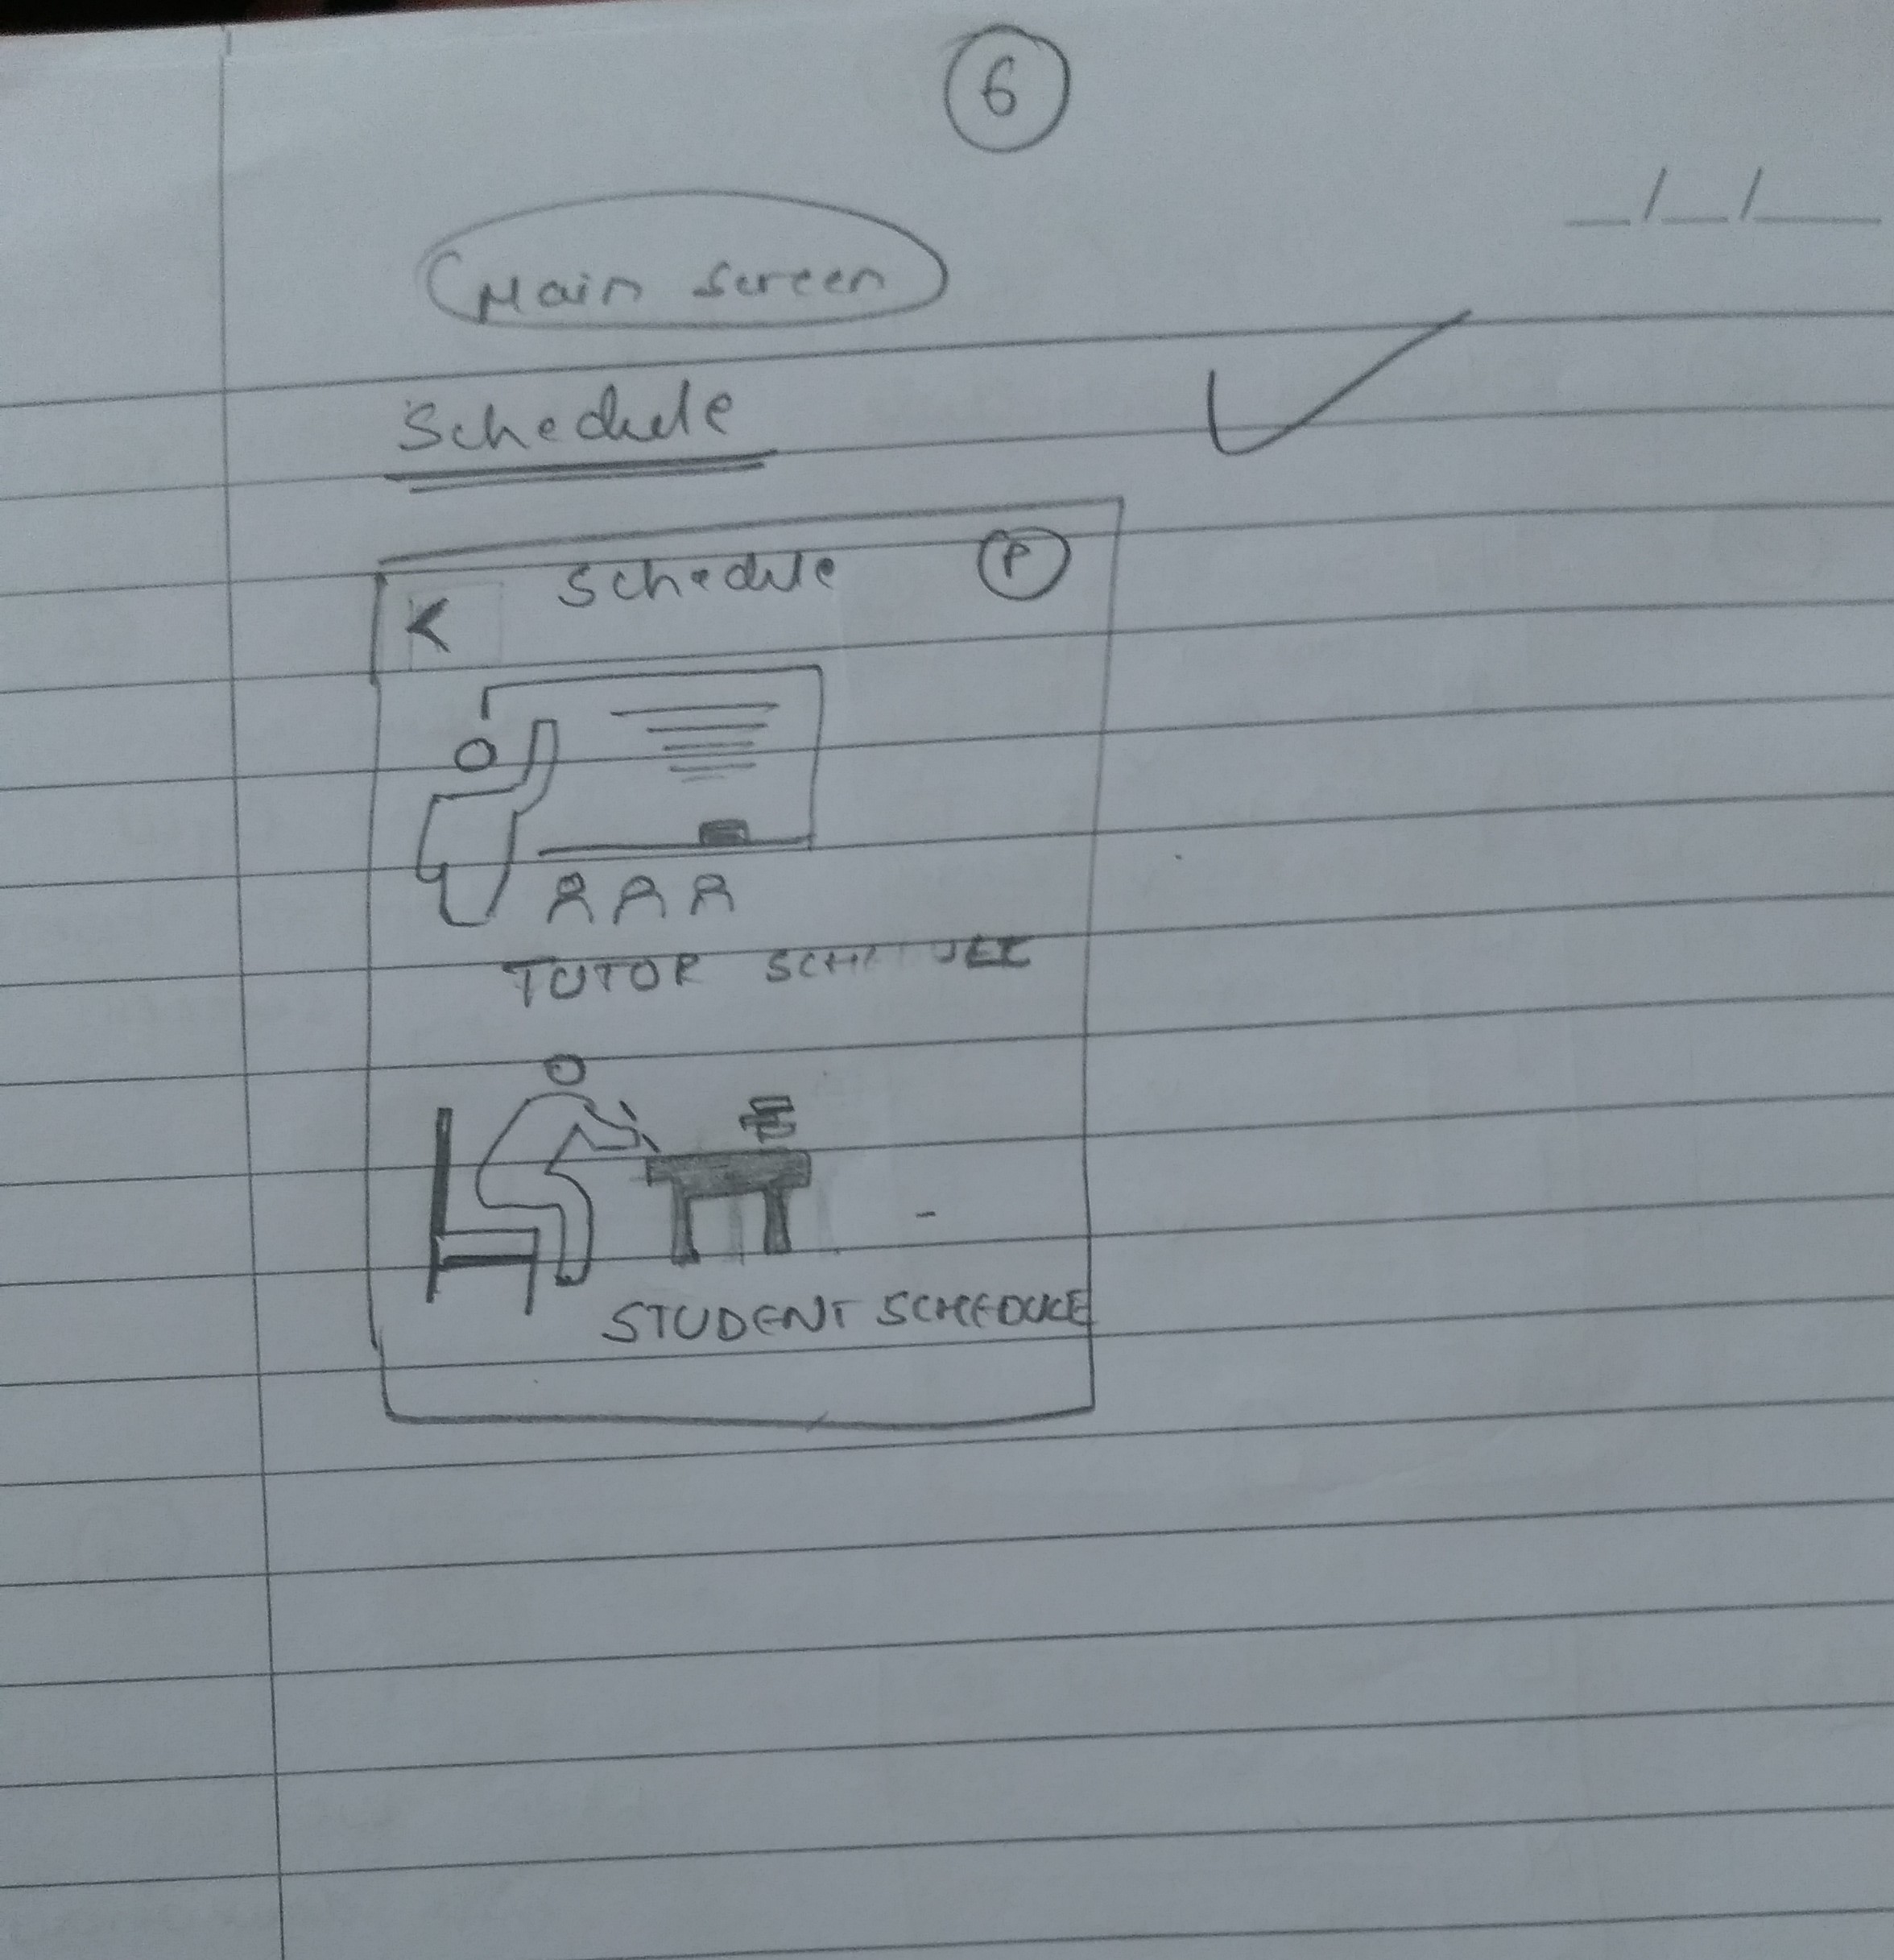 6
Main Screen
Schedule
< Schedule P
TUTOR
STUDENT SCHEDULE